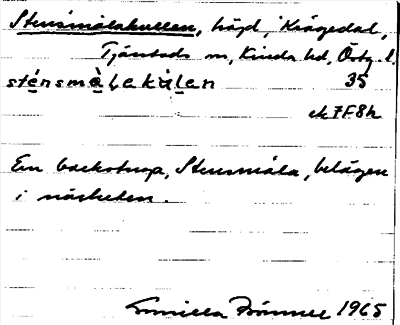 Stensmålakullen, höjd, Krågedal,
Tjärstads sn, Kinda hd, Östg. l.
sténsmå̀lakùlen 35
ek 7F8h
En backstuga, Stensmåla, belägen
i närheten.
Gunilla 1965